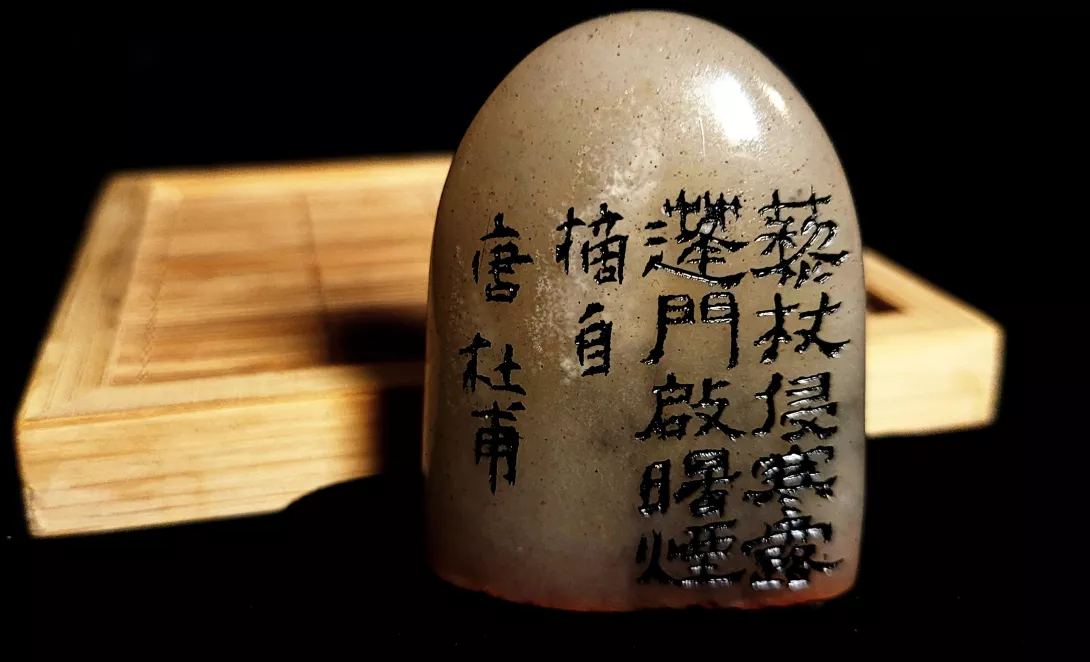 藜杖侵寒露
蓬門啟曙煙
摘自
唐 杜甫